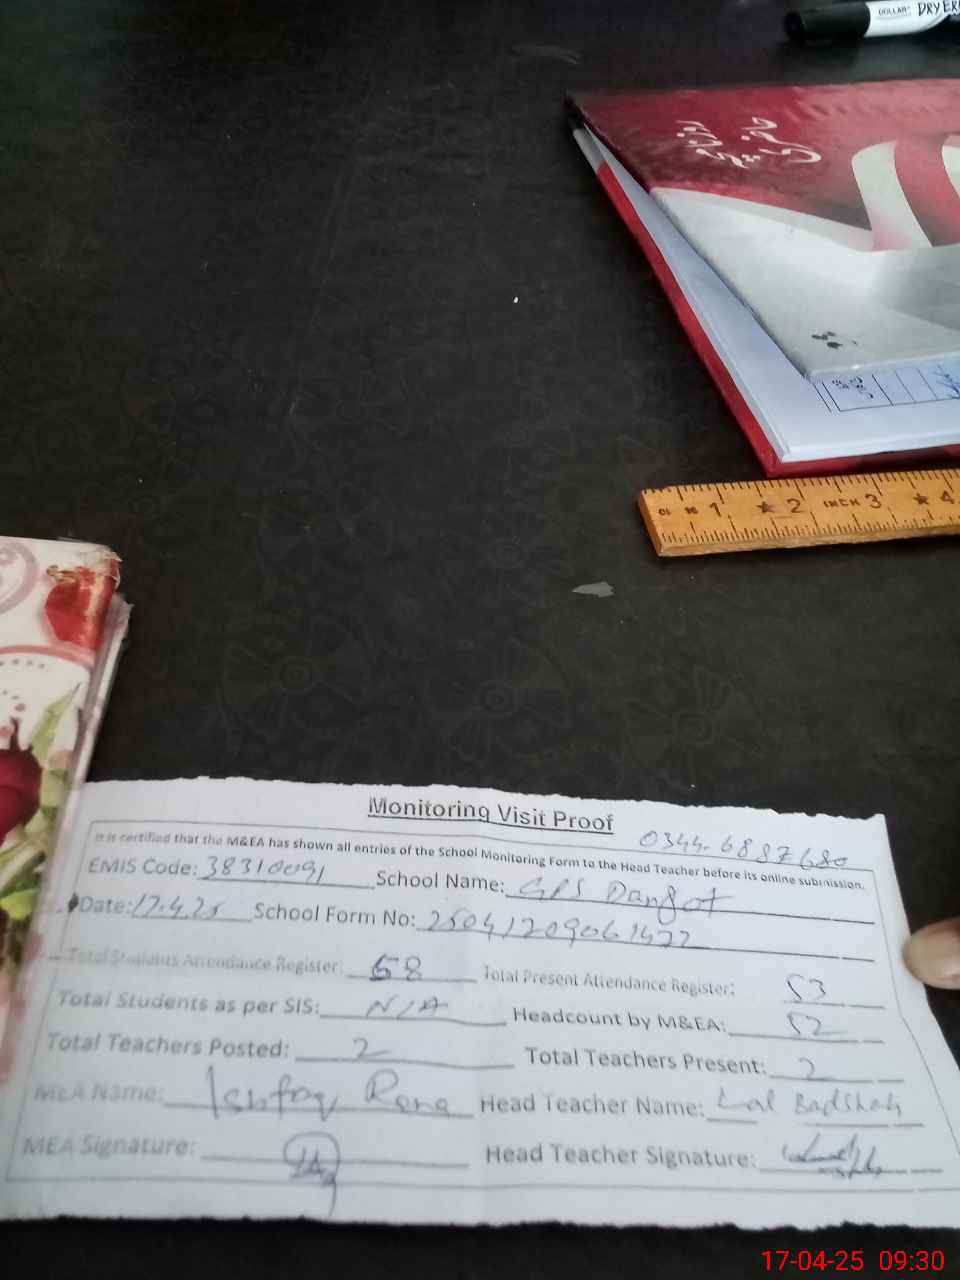 DOLLAR DRY ER
روزنامچہ
حاضری
1 ★ 2 INCH 3 ★ 4
Monitoring Visit Proof
0344-6887680
It is certified that the M&EA has shown all entries of the School Monitoring Form to the Head Teacher before its online submission.
EMIS Code: 38310091 School Name: GPS Dangot
Date: 17.4.25 School Form No: 250417209061422
Total Students Attendance Register: 68 Total Present Attendance Register: 53
Total Students as per SIS: N/A Headcount by M&EA: 52
Total Teachers Posted: 2 Total Teachers Present: 2
MEA Name: Ishfaq Rana Head Teacher Name: Lal Badshah
MEA Signature: Head Teacher Signature:
17-04-25 09:30